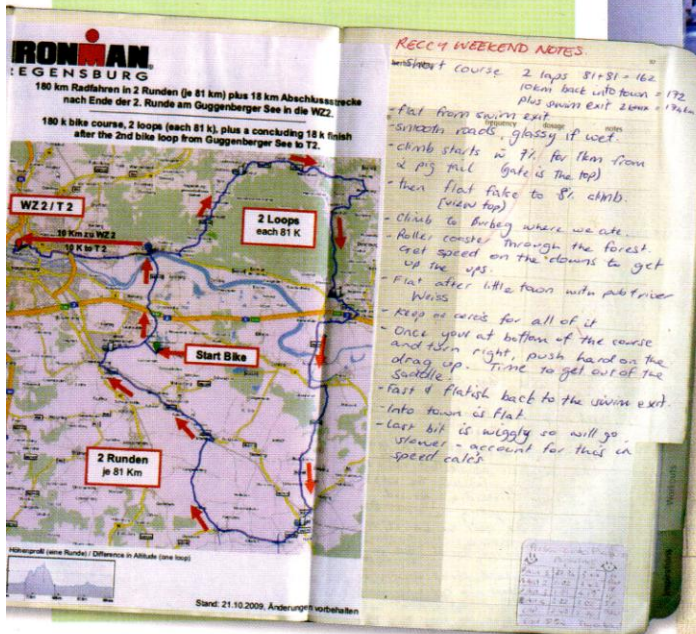 IRONMAN
REGENSBURG
180 km Radfahren in 2 Runden (je 81 km) plus 18 km Abschlussstrecke
nach Ende der 2. Runde am Guggenberger See in die WZ2.
180 k bike course, 2 loops (each 81 k), plus a concluding 18 k finish
after the 2nd bike loop from Guggenberger See to T2.
WZ 2 / T 2
10 Km zu WZ2
10 K to T 2
2 Loops
each 81 K
Start Bike
2 Runden
je 81 Km
Höhenprofil (eine Runde) / Difference in Altitude (one loop)
Stand: 21.10.2009, Änderungen vorbehalten
RECCY WEEKEND NOTES.
- Short course 2 laps 81+81 = 162
10km back into town = 172
plus swim exit
- flat from swim exit
frequency dosage notes
- smooth roads. glossy if wet.
- climb starts w 7% for 1km from
a pig tail (gate is the top)
- then flat false to 8% climb.
(view top)
- Climb to where we ate.
- Roller coaster through the forest.
Get speed on the downs to get
up the ups.
- Flat after little town with pub + river
Weiss
- Keep on aero's for all of it
- Once your at bottom of the course
and turn right, push hard on the
drag up. Time to get out of the
saddle.
- Fast & flatish back to the swim exit.
- Into town is flat.
- Last bit is wiggly so will go
slower - account for this in
speed calcs
Workouts